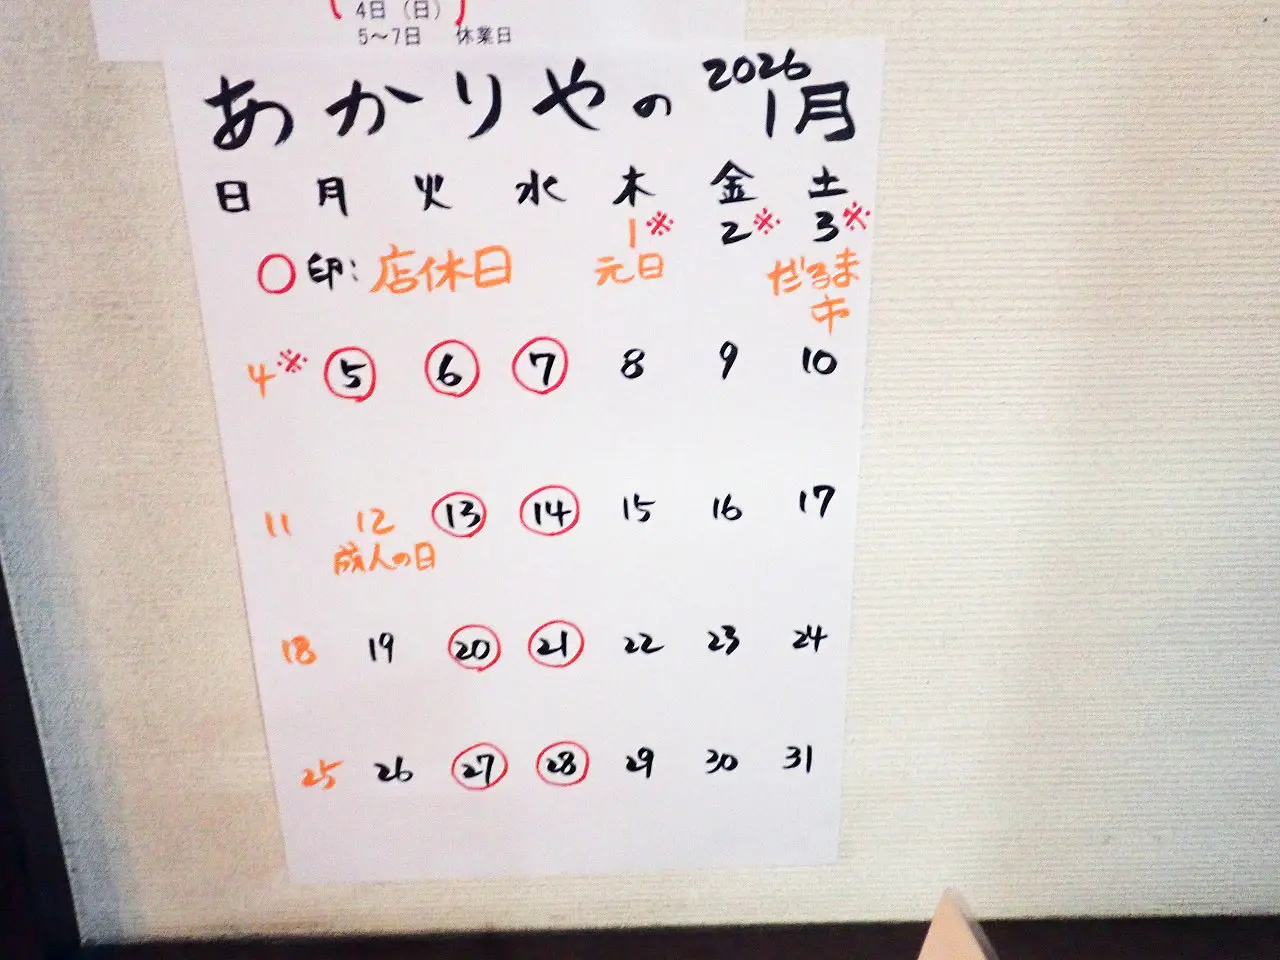 4日（日）
5～7日 休業日
あかりやの 2026 1月
日 月 火 水 木 金 土
1※ 2※ 3※
○印：店休日 元日 だるま
市
4※ 5 6 7 8 9 10
11 12 13 14 15 16 17
成人の日
18 19 20 21 22 23 24
25 26 27 28 29 30 31